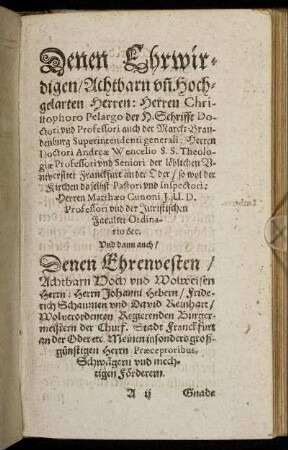 Denen Ehrwir-
digen/Achtbarn vñ Hoch-
gelarten Herren: Herren Chri-
stophoro Pelargo der H. Schrifft Do-
ctori vnd Professori auch der Marck Bran-
denburg Superintendenti generali: Herren
Doctori Andreæ Wencelio S. S. Theolo-
giæ Professori vnd Seniori der löblichen V-
niversitet Franckfurt an der Oder / so wol der
Kirchen daselbst Pastori vnd Inspectori:
Herren Matthæo Cunoni J. U. D.
Professori vnd der Juristischen
Facultet Ordina-
rio &c.
Vnd dann auch /
Denen Ehrenvesten /
Achtbarn Hoch vnd Wolweisen
Herrn: Herrn Johanni Hebern / Fride-
rich Schaumen vnd David Reinhart /
Wolverordenten Regierenden Bürger-
meistern der Churf. Stadt Franckfurt
an der Oder etc. Meinen insonders groß-
günstigen Herrn Præceptoribus,
Schwägern vnd mech-
tigen Förderern.
A ij Gnade